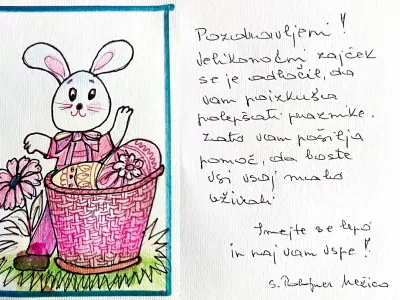 Pozdravljeni!
Velikonočni zajček
se je odločil, da
vam poizkuša
polepšati praznike.
Zato vam pošilja
pomoč, da boste
vsi vsaj malo
uživali
Imejte se lepo
in naj vam uspe!
s. Mežica